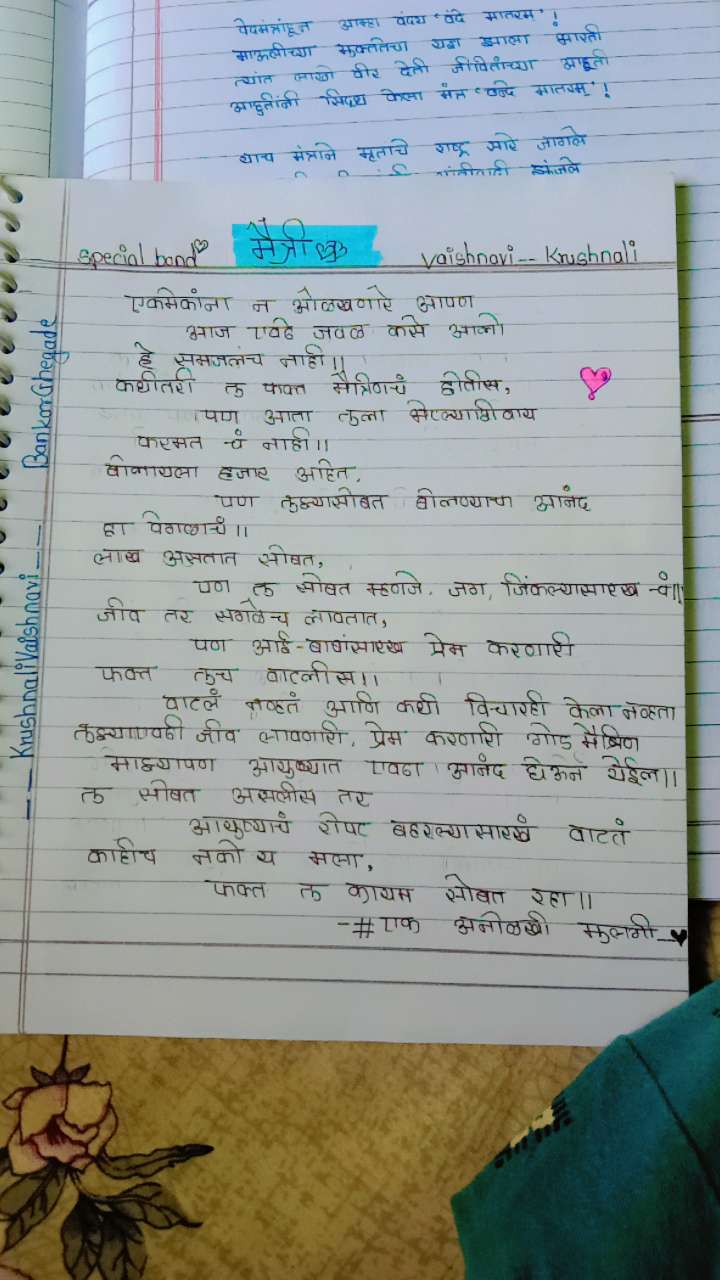 वेदमंत्रांहून आम्हा वंद्य "वंदे मातरम" !
माऊलीच्या मुक्ततेचा यज्ञ झाला भारती
त्यांत लाखो वीर देती जीवितांच्या आहूती
आहुतींनी सिद्ध केला मंत्र "वन्दे मातरम्" !
याच मंत्राने मृतांचे राष्ट्र सारे जागले
झुंजले
special band
मैत्री
Vaishnavi-- Krushnali
एकमेकांना न ओळखणारे आपण
आज एवढे जवळ कसे आलो
हे समजलंच नाही।।
कधीतरी तु फक्त मैत्रिणचं होतीस,
पण आता तुला भेटल्याशिवाय
करमत चं नाही।।
बोलायला हजार आहेत,
पण तुझ्यासोबत बोलण्याचा आनंद
हा वेगळाचं।।
लाख असतात सोबत,
पण तु सोबत म्हणजे. जग, जिंकल्यासारख -चं॥
जीव तर सगळेच लावतात,
पण आई-बाबांसारख प्रेम करणारी
फक्त तुच वाटलीस।।
वाटलं नव्हतं आणि कधी विचारही केला नव्हता
तुझ्याएवढी जीव लावणारी, प्रेम करणारी गोड मैत्रिण
माझ्यापण आयुष्यात एवढा आनंद घेऊन येईल।।
तु सोबत असलीस तर
आयुष्याचं रोपट बहरल्यासारखं वाटतं
काहीच नको य मला,
फक्त तु कायम सोबत रहा।।
-# एक अनोळखी मुलगी
-- Krushnali Vaishnavi -- Bankar Ghegade